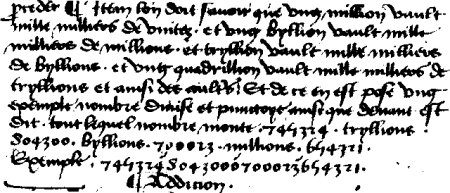 preder ¶ Item lon doit savoir que ung million vault
mille milliers de unitez . et ung byllion vault mille
milliers de millions . et tryllion vault mille milliers
de byllions . et ung quadrillion vault mille milliers de
tryllions et ainsi des aultres Et de ce en est pose ung
exemple nombre divise et punctoye ainsi que devant est
dit . tout lequel nombre monte . 745324 . tryllions
804300 . byllions . 700023 . millions . 654321 .
Exemple . 745324 8043000700023654321 .
¶ Addicion .